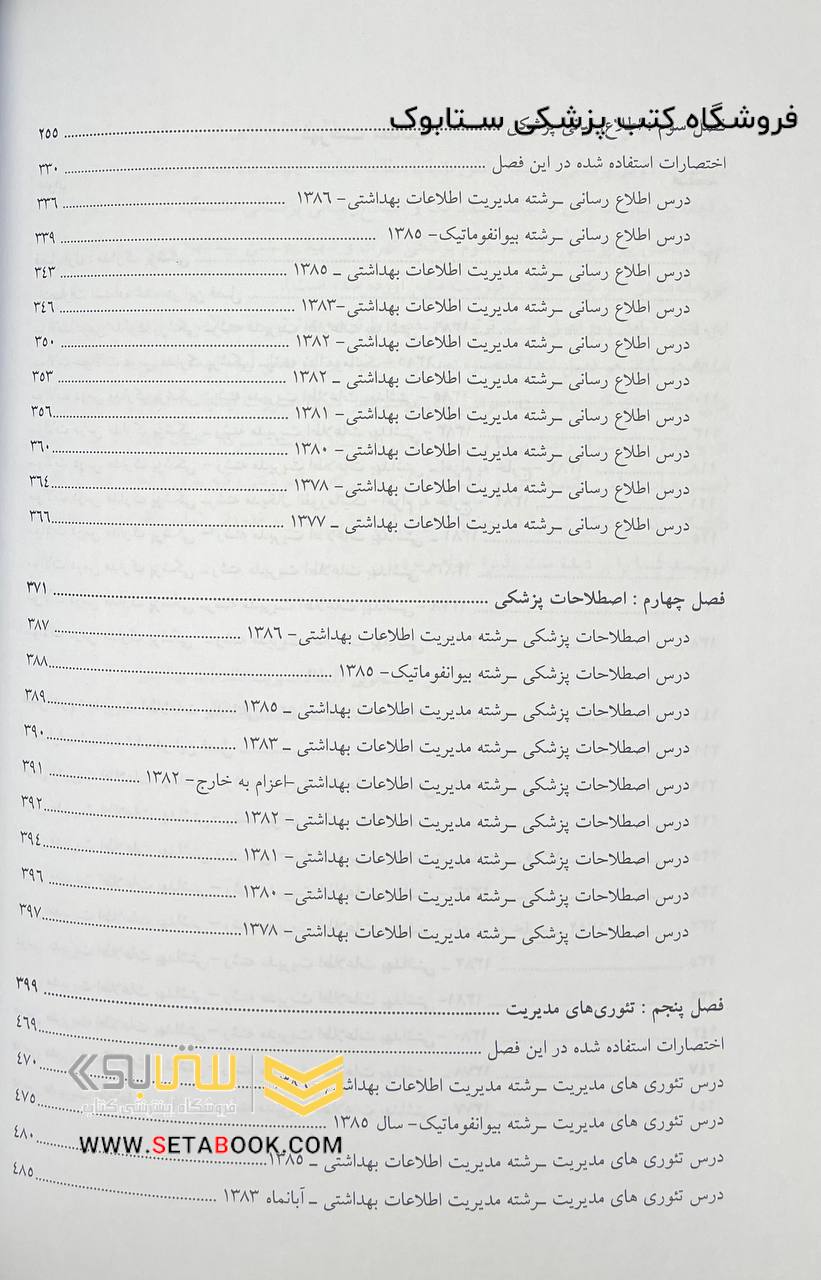 فروشگاه کتب پزشکی ستابوک
فصل سوم : اطلاع رسانی پزشکی ........ ۲۵۵
اختصارات استفاده شده در این فصل ........ ۳۳۰
درس اطلاع رسانی –رشته مدیریت اطلاعات بهداشتی- ۱۳۸۶ ........ ۳۳۶
درس اطلاع رسانی –رشته بیوانفوماتیک- ۱۳۸۵ ........ ۳۳۹
درس اطلاع رسانی –رشته مدیریت اطلاعات بهداشتی – ۱۳۸۵ ........ ۳۴۳
درس اطلاع رسانی –رشته مدیریت اطلاعات بهداشتی-۱۳۸۳ ........ ۳۴۶
درس اطلاع رسانی –رشته مدیریت اطلاعات بهداشتی- ۱۳۸۲ ........ ۳۵۰
درس اطلاع رسانی –رشته مدیریت اطلاعات بهداشتی – ۱۳۸۲ ........ ۳۵۳
درس اطلاع رسانی –رشته مدیریت اطلاعات بهداشتی- ۱۳۸۱ ........ ۳۵۶
درس اطلاع رسانی –رشته مدیریت اطلاعات بهداشتی- ۱۳۸۰ ........ ۳۶۰
درس اطلاع رسانی –رشته مدیریت اطلاعات بهداشتی- ۱۳۷۸ ........ ۳۶۴
درس اطلاع رسانی –رشته مدیریت اطلاعات بهداشتی – ۱۳۷۷ ........ ۳۶۶
فصل چهارم : اصطلاحات پزشکی ........ ۳۷۱
درس اصطلاحات پزشکی –رشته مدیریت اطلاعات بهداشتی- ۱۳۸۶ ........ ۳۸۷
درس اصطلاحات پزشکی –رشته بیوانفوماتیک- ۱۳۸۵ ........ ۳۸۸
درس اصطلاحات پزشکی –رشته مدیریت اطلاعات بهداشتی – ۱۳۸۵ ........ ۳۸۹
درس اصطلاحات پزشکی –رشته مدیریت اطلاعات بهداشتی – ۱۳۸۳ ........ ۳۹۰
درس اصطلاحات پزشکی –رشته مدیریت اطلاعات بهداشتی-اعزام به خارج- ۱۳۸۲ ........ ۳۹۱
درس اصطلاحات پزشکی –رشته مدیریت اطلاعات بهداشتی- ۱۳۸۲ ........ ۳۹۲
درس اصطلاحات پزشکی –رشته مدیریت اطلاعات بهداشتی- ۱۳۸۱ ........ ۳۹۴
درس اصطلاحات پزشکی –رشته مدیریت اطلاعات بهداشتی- ۱۳۸۰ ........ ۳۹۶
درس اصطلاحات پزشکی –رشته مدیریت اطلاعات بهداشتی- ۱۳۷۸ ........ ۳۹۷
فصل پنجم : تئوری‌های مدیریت ........ ۳۹۹
اختصارات استفاده شده در این فصل ........ ۴۶۹
درس تئوری های مدیریت –رشته مدیریت اطلاعات بهداشتی ........ ۴۷۰
درس تئوری های مدیریت –رشته بیوانفوماتیک- سال ۱۳۸۵ ........ ۴۷۵
درس تئوری های مدیریت –رشته مدیریت اطلاعات بهداشتی – ۱۳۸۵ ........ ۴۸۰
درس تئوری های مدیریت –رشته مدیریت اطلاعات بهداشتی – آبانماه ۱۳۸۳ ........ ۴۸۵
ستابوک
فروشگاه اینترنتی کتاب
WWW.SETABOOK.COM